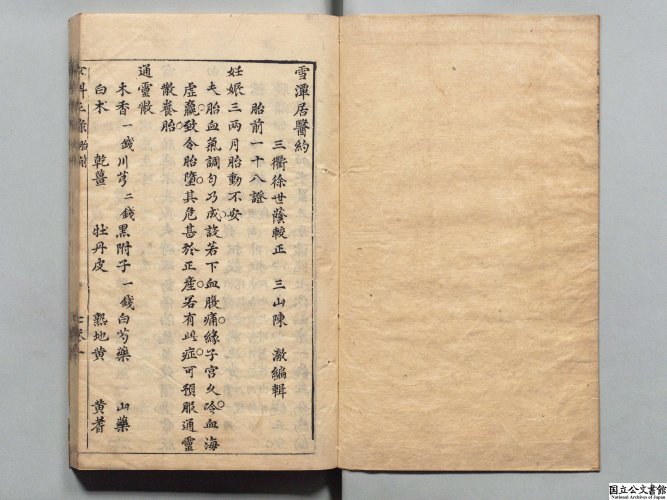 雪潭居醫約
三衢徐世蔭較正 三山陳 澈編輯
胎前一十八證
妊娠三兩月胎動不安
夫胎血氣調勻乃成設若下血腹痛緣子宮久冷血海
虛羸致令胎墮其危甚於正產若有此症可預服通靈
散養胎
通靈散
木香一錢川芎二錢黑附子一錢白芍藥 山藥
白朮 乾薑 牡丹皮 熟地黃 黃蓍
胎前
国立公文書館
National Archives of Japan